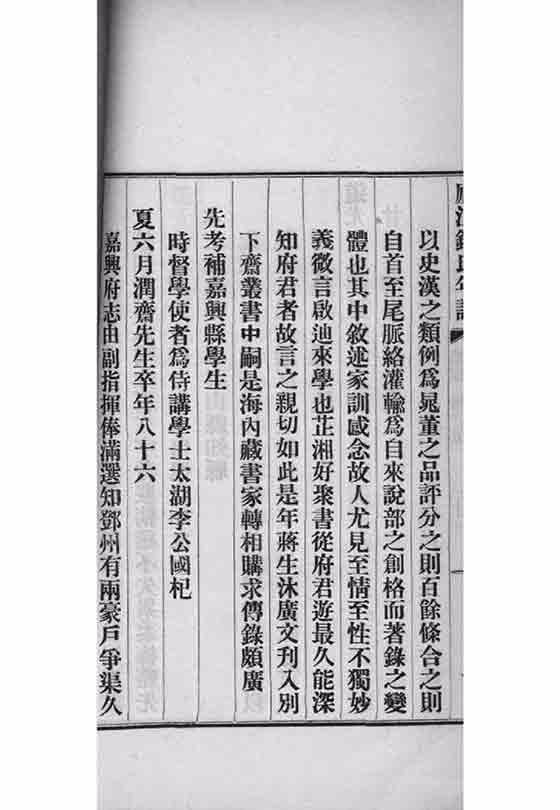 以史漢之類例爲晁董之品評分之則百餘條合之則
自首至尾脈絡灌輸爲自來說部之創格而著錄之變
體也其中敘述家訓感念故人尤見至情至性不獨妙
義微言啟迪來學也芷湘好聚書從府君遊最久能深
知府君者故言之親切如此是年蔣生沐廣文刊入別
下齋叢書中嗣是海內藏書家轉相購求傳錄頗廣
先考補嘉興縣學生
時督學使者爲侍講學士太湖李公國杞
夏六月潤齋先生卒年八十六
嘉興府志由副指揮俸滿選知鄧州有兩豪戶爭渠久